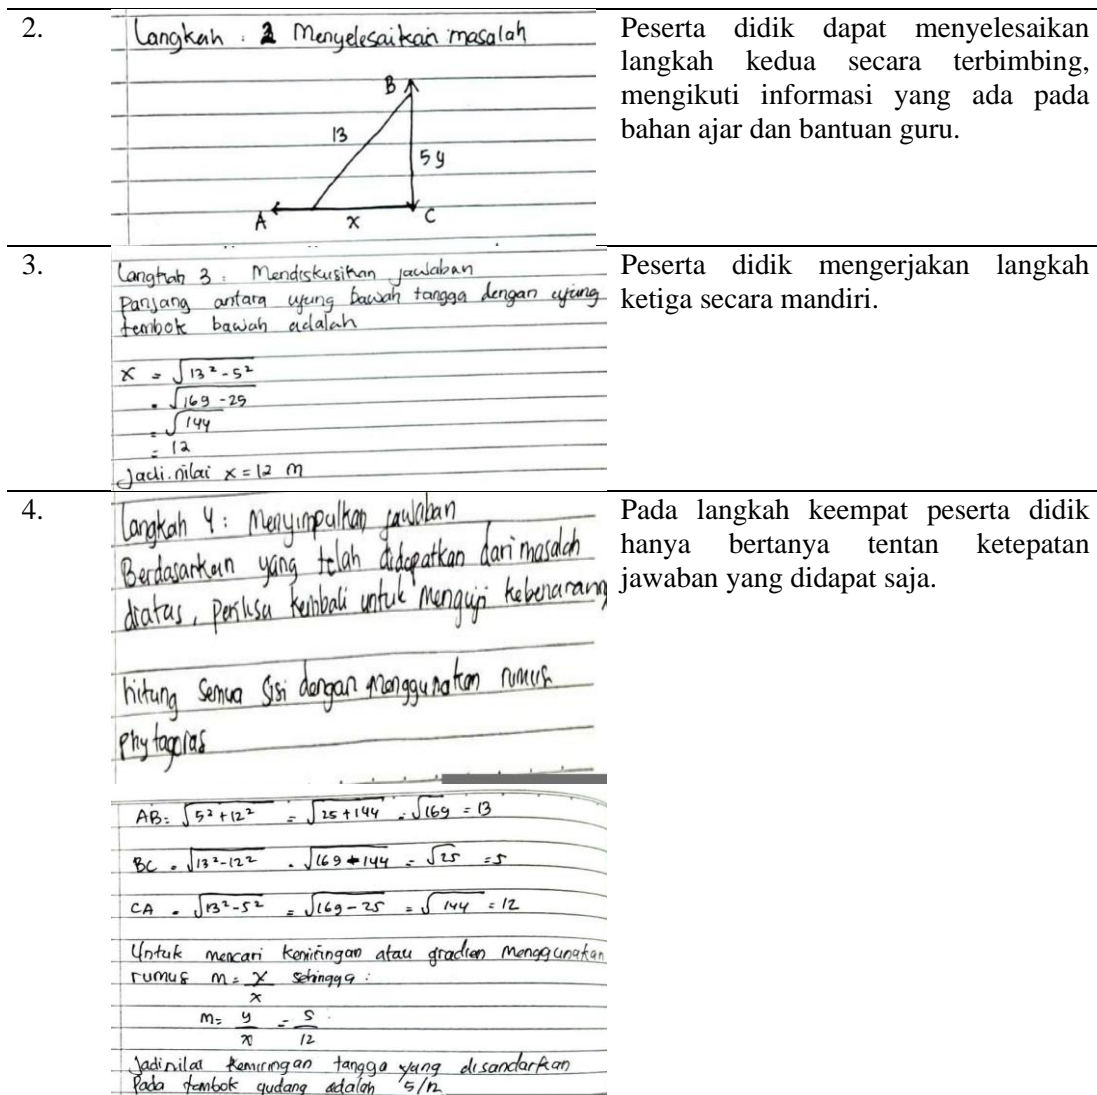 2.
Langkah : 2 Menyelesaikan masalah
B
13
5 y
A
x
C
Peserta didik dapat menyelesaikan
langkah kedua secara terbimbing,
mengikuti informasi yang ada pada
bahan ajar dan bantuan guru.
3.
Langkah 3 : Mendiskusikan jawaban
Panjang antara ujung bawah tangga dengan ujung
tembok bawah adalah
x = √13² - 5²
= √169 - 25
= √144
= 12
Jadi. nilai x = 12 m
Peserta didik mengerjakan langkah
ketiga secara mandiri.
4.
Langkah 4 : Menyimpulkan jawaban
Berdasarkan yang telah didapatkan dari masalah
diatas, periksa kembali untuk menguji kebenarannya
hitung semua sisi dengan menggunakan rumus
phytagoras
AB = √5² + 12² = √25 + 144 = √169 = 13
BC = √13² - 12² = √169 - 144 = √25 = 5
CA = √13² - 5² = √169 - 25 = √144 = 12
Untuk mencari kemiringan atau gradien menggunakan
rumus m = y/x sehingga :
m = y/x = 5/12
Jadi nilai kemiringan tangga yang disandarkan
Pada tembok gudang adalah 5/12
Pada langkah keempat peserta didik
hanya bertanya tentan ketepatan
jawaban yang didapat saja.